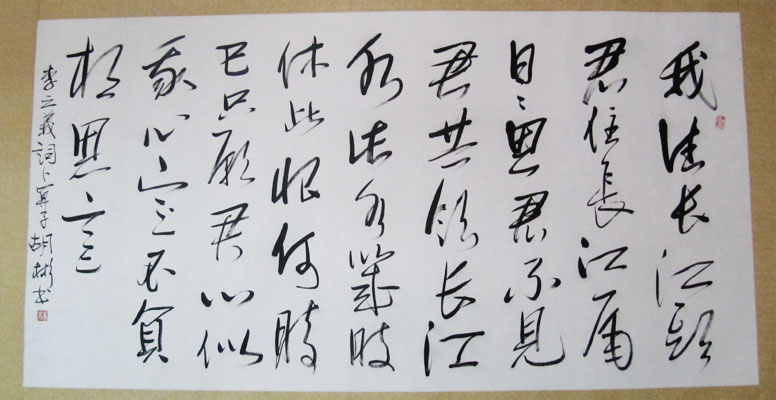 我住长江头
君住長江尾
日日思君不見
君共饮长江
水此水幾时
休此恨何时
已只愿君心似
我心定不負
相思意
李之義詞卜算子胡彬书